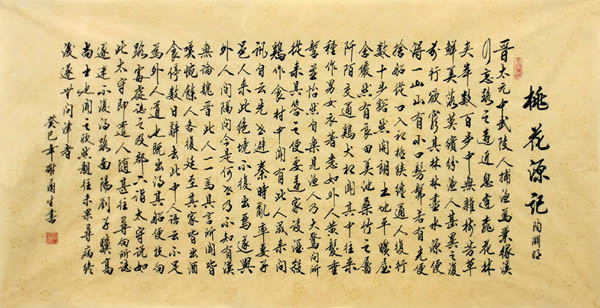 桃花源記
陶淵明
晉太元中武陵人捕漁為業緣溪
行忘路之遠近忽逢桃花林
夾岸數百步中無雜樹芳草
鮮美落英繽紛漁人甚異之復
前行欲窮其林林盡水源便
得一山山有小口髣髴若有光便
捨船從口入初極狹纔通人復行
數十步豁然開朗土地平曠屋
舍儼然有良田美池桑竹之屬
阡陌交通雞犬相聞其中往來
種作男女衣著悉如外人黃髮垂
髫並怡然自樂見漁人乃大驚問所
從來具答之便要還家設酒殺
雞作食村中聞有此人咸來問
訊自云先世避秦時亂率妻子
邑人來此絕境不復出焉遂與
外人間隔問今是何世乃不知有漢
無論魏晉此人一一為具言所聞皆
嘆惋餘人各復延至其家皆出酒
食停數日辭去此中人語云不足
為外人道也既出得其船便扶向
路處處誌之及郡下詣太守說如
此太守即遣人隨其往尋向所誌
遂迷不復得路南陽劉子驥高
尚士也聞之欣然親往未果尋病終
後遂無問津者
癸巳年 生書